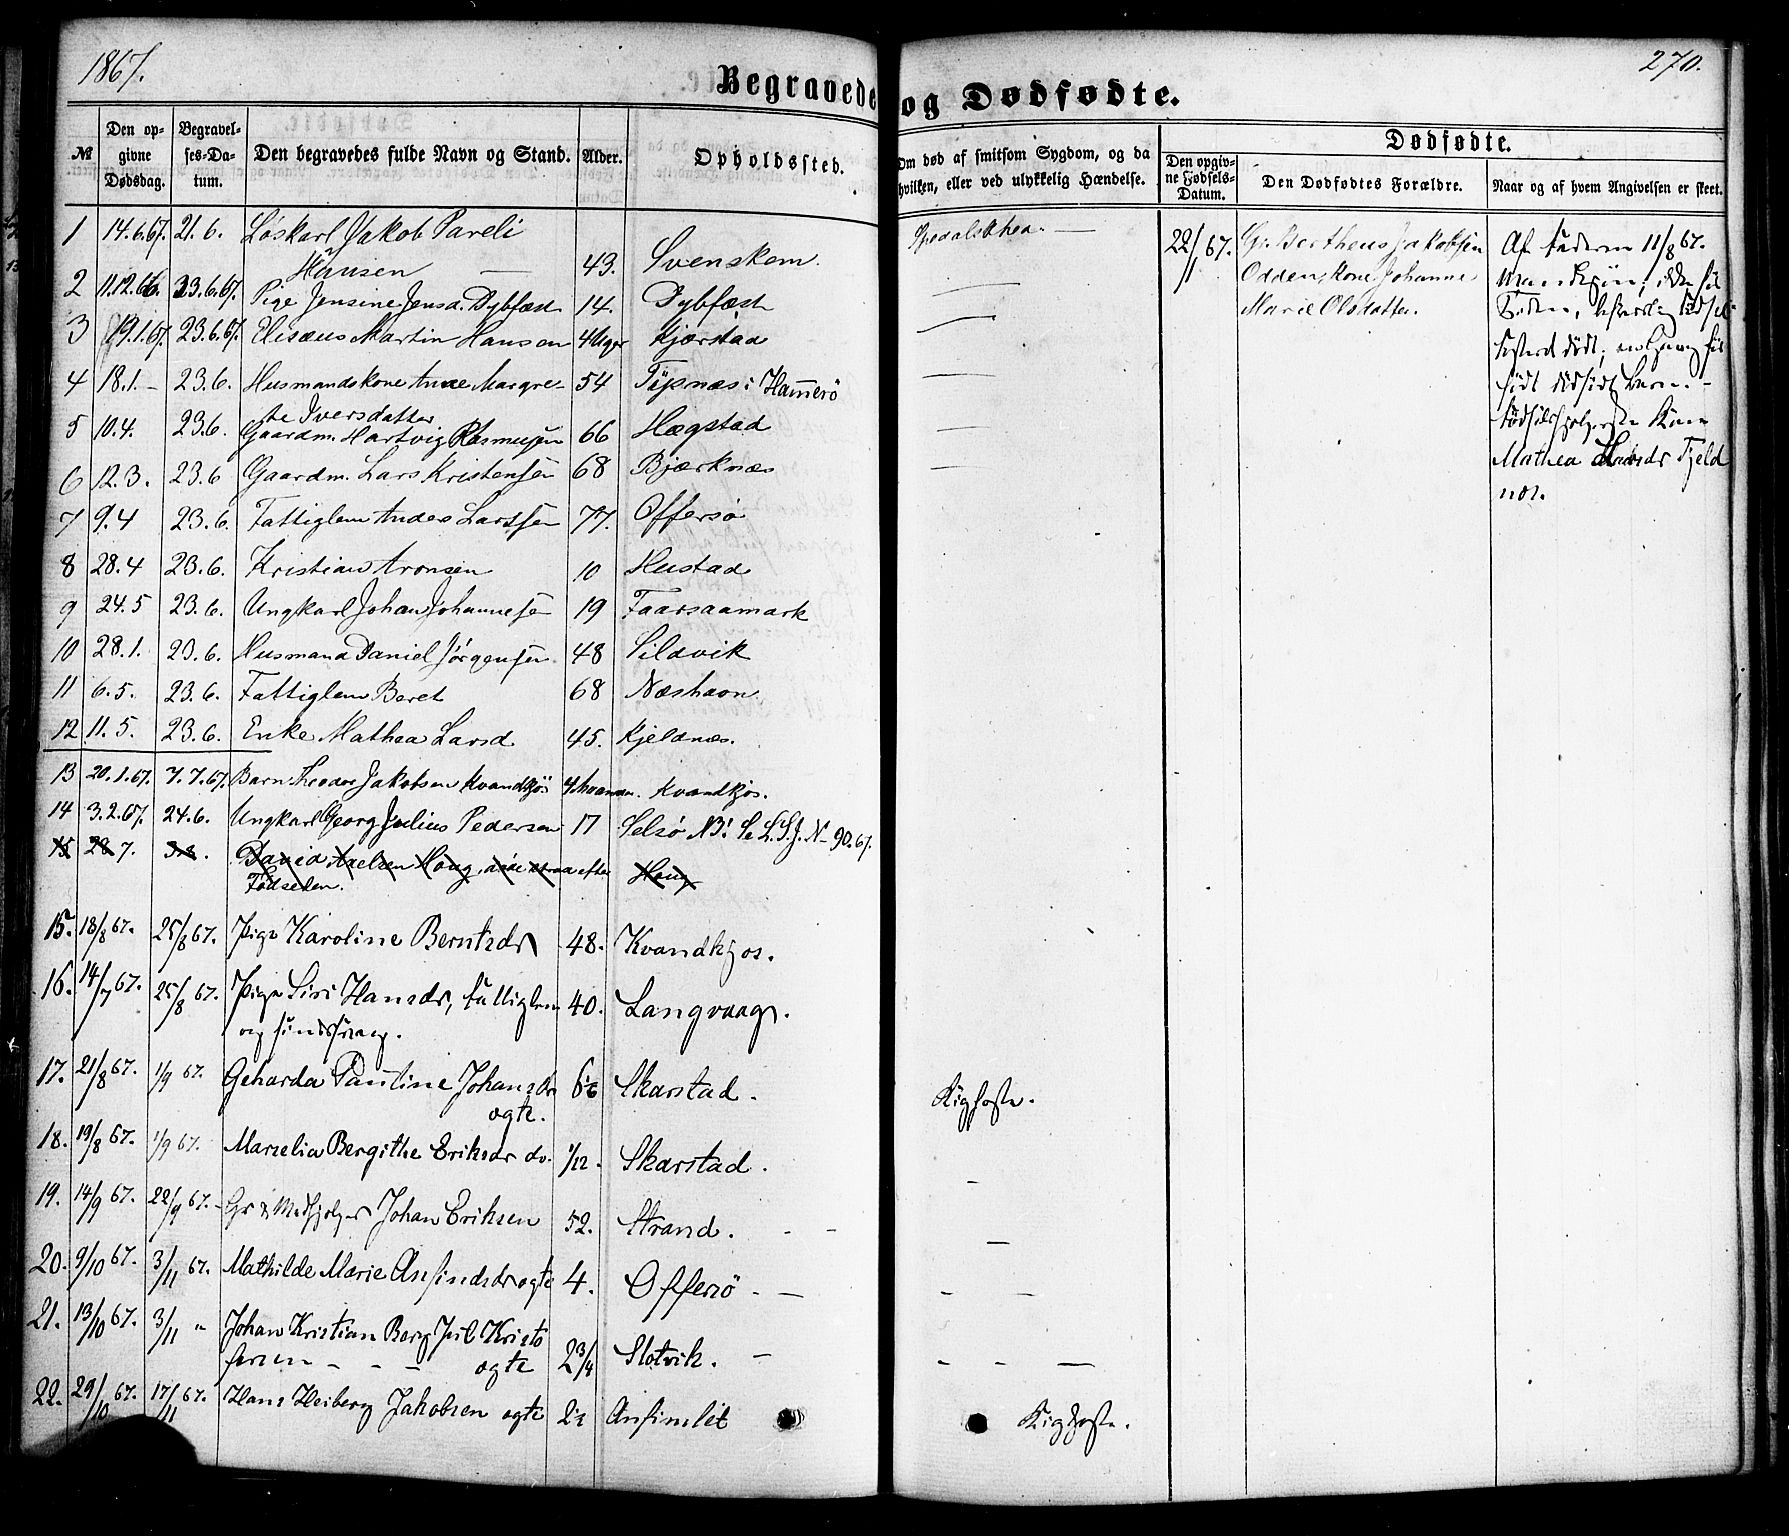 1867.
270.
Begravede og Dødfødte.
№
Den op-
givne
Dødsdag.
Begravel-
ses-Da-
tum.
Den begravedes fulde Navn og Stand.
Alder.
Opholdssted.
Om død af smitsom Sygdom, og da
hvilken, eller ved ulykkelig Hændelse.
Dødfødte.
Den opgiv-
ne Fødsels-
Datum.
Den Dødfødtes Forældre.
Naar og af hvem Angivelsen er skeet.
1 14.6.67. 21.6. Løskarl Jakob Pareli
Hansen 43. Svenskom.
2 11.12.66 23.6.67. Pige Jensine Jensd. Dybfæst 14. Dybfæst
3 19.1.67. 23.6.67. Elisæus Martin Hansen 4 Uger Kjærstad
4 18.1.– 23.6. Husmandskone Ane Margre- 54 i Hammerø
te Iversdatter
5 10.4. 23.6. Gaardm. Hartvig Rasmussen 66 Hægstad
6 12.3. 23.6 Gaardm. Lars Kristensen 68 Bjærknæs
7 9.4 23.6. Fattiglem Anders Larssen 77. Offersø
8 28.4 23.6. Kristian Aronsen 10 Hustad
9 24.5 23.6. Ungkarl Johan Johannesen 19 Taarsaamark
10 28.1. 23.6. Husmand Daniel Jørgensen 48 Sildvik
11 6.5. 23.6. Fattiglem Beret 68 Næshavn
12 11.5. 23.6. Enke Mathea Larsd. 45. Kjeldnæs.
13 20.1.67. 7.7.67. Barn Theodor Jakobsen Kvandkjos 4 Kvandkjos.
14 3.2.67. 24.6. Ungkarl Georg Julius Pedersen 17 Selsø NB! Se L.S.J. No 90.67.
15 28 7. David Axelsen Houg, døde strax efter Houg
Fødselen.
15. 18/8 67. 25/8 67. Pige Karoline Berntsdr 48. Kvandkjos.
16. 14/7 67. 25/8 67. Pige Siri Hansdr, Fattiglem 40. Langvaag.
og sindssvag.
17. 21/8 67. 1/9 67. Geharda Pauline Johansdr Skarstad.
ogte. Kighoste.
18. 19/8 67. 1/9 67. Marselia Bergithe Eriksdr do. 1/12. Skarstad.
19. 14/9 67. 22/9 67. Gr & Medhjelper Johan Eriksen 52. Strand.
20. 9/10 67. 3/11 67. Mathilde Marie Anfindsdr ogte 4. Offersö
21. 13/10 67. 3/11 " Johan Kristian Berg Juel Kristo
fersen – – – ogte 2 3/4 Slotvik.
22. 29/10 67. 17/11 67. Hans Heiberg Jakobsen ogte Anfinslet Kighoste.
Spedalskhed.
22/1 67.
Gr. Bertheus Jakobsen
Odden, Kone Johanne
Marie Olsdatter.
Af Faderen 11/8 67.
født dødfødt Barn.
Mathea Fjeld
nes.